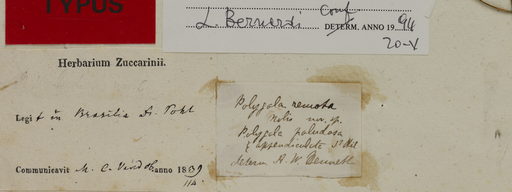 TYPUS
L. Bernardi conf.
DETERM. ANNO 1994
20-V
Herbarium Zuccarinii.
Legit in Brasilia Dr. Pohl
Polygala remota
nobis nov. sp.
Polygala paludosa
& appendiculata St Hil
determ A. W. Bennett
Communicavit M. C. Vindob anno 1839